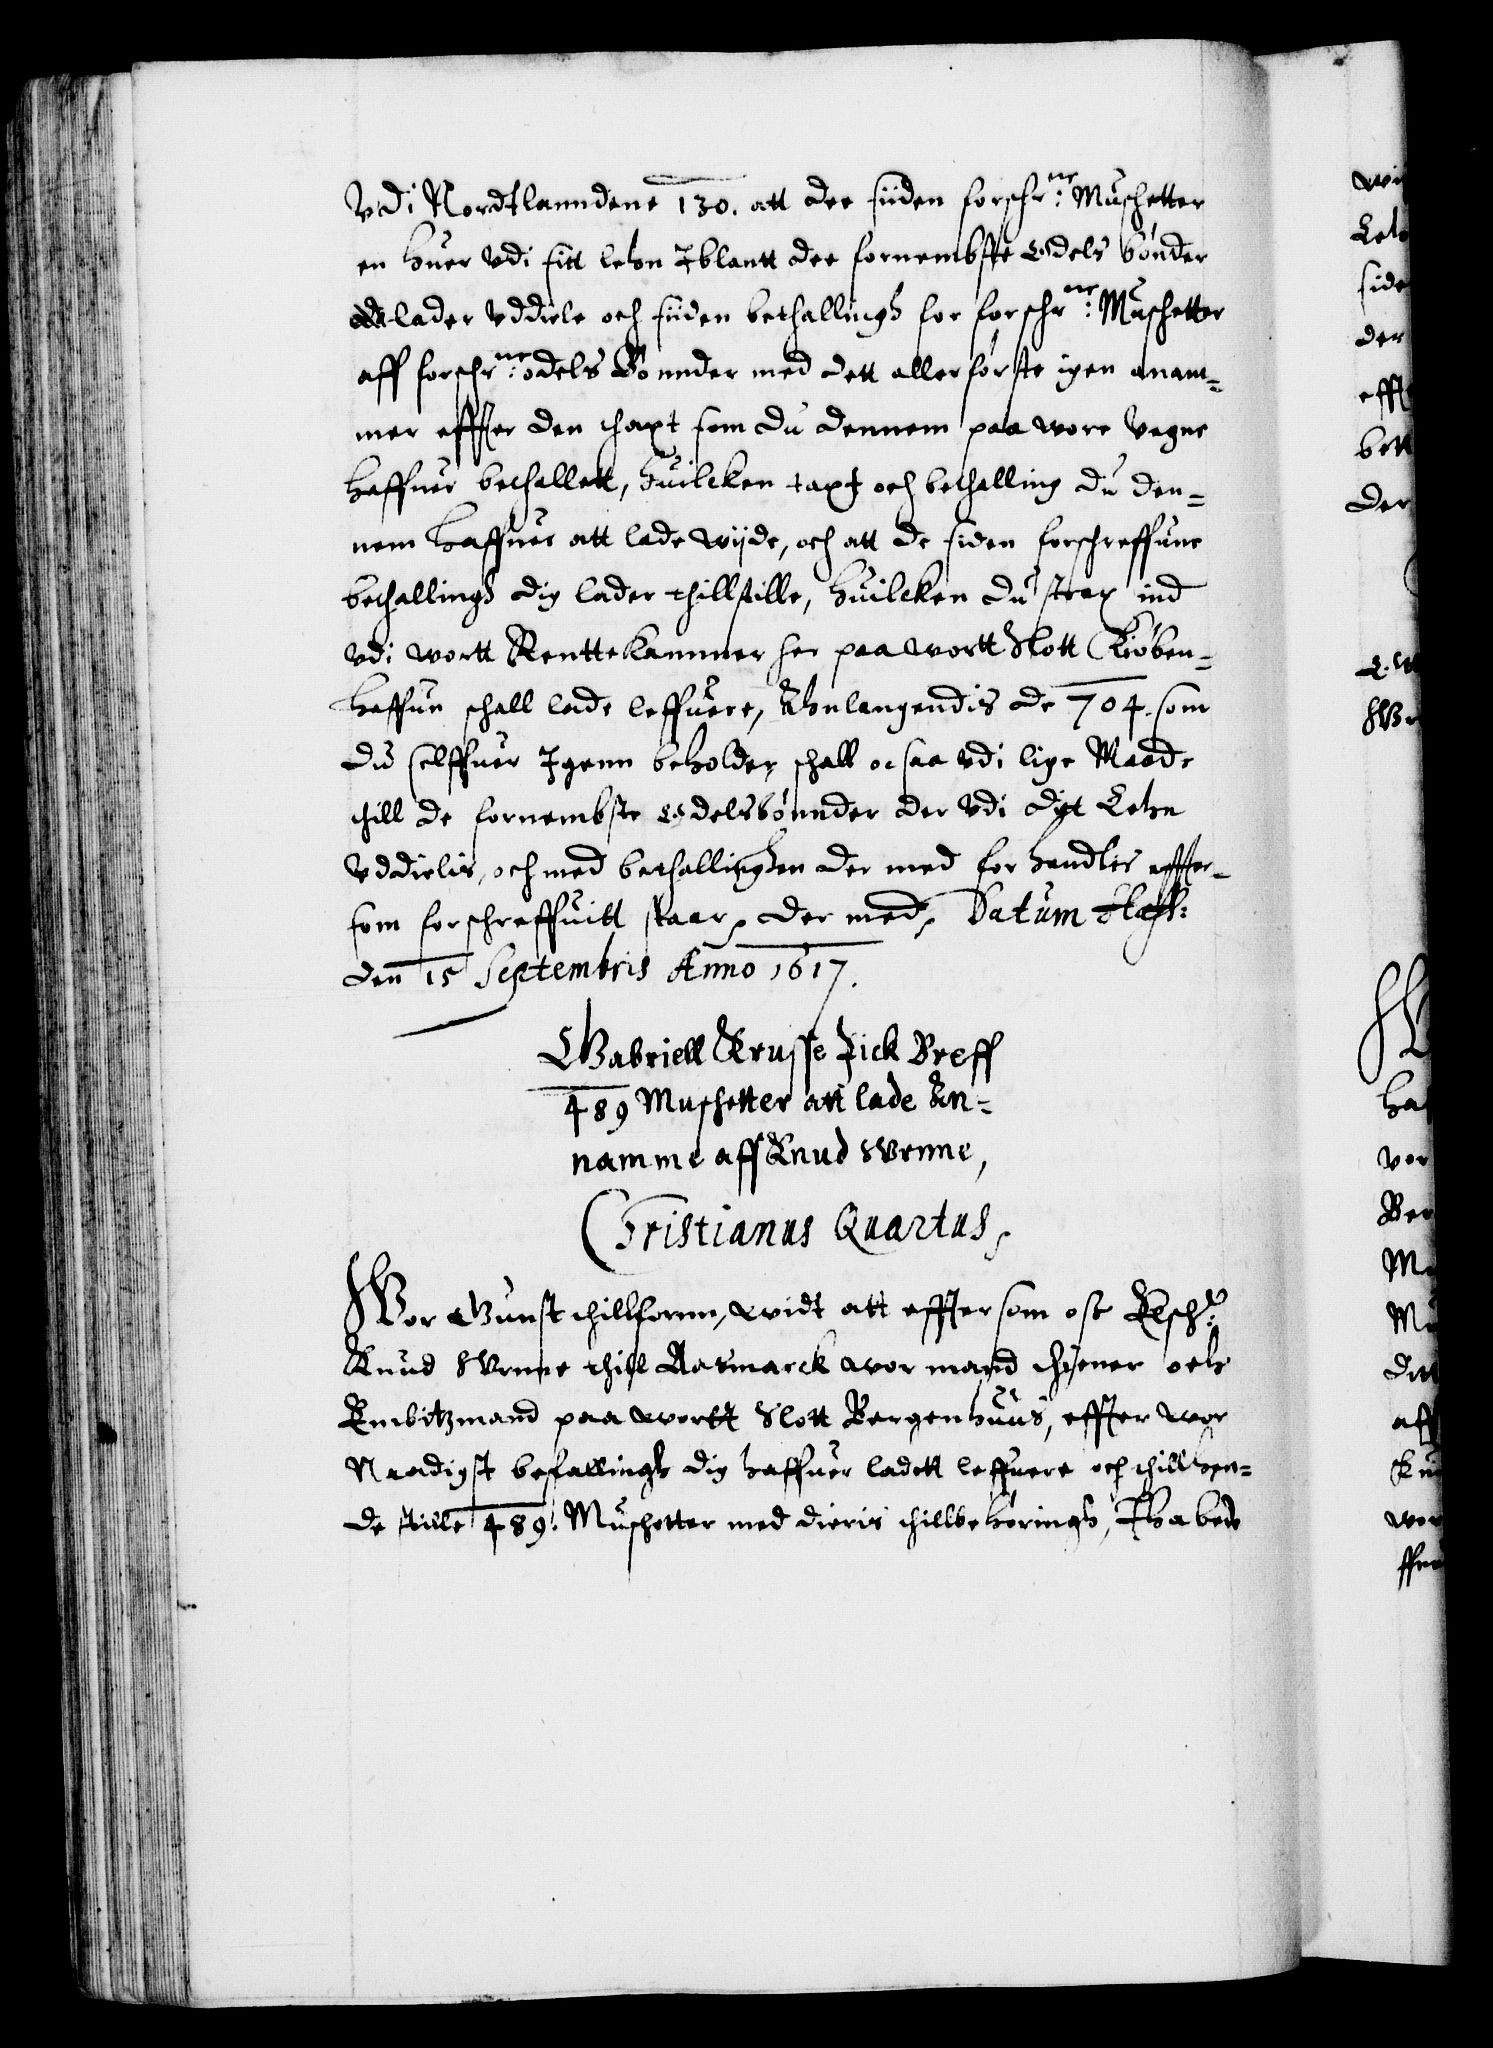 Vdi Nordtlanndene 130. att dee siiden forschr:ne Muschetter
en huer Vdi sitt lehn Jblantt dee fornembste Odels bønder
lader Vddiele och siiden bethallingh for forschr:ne Muschetter
aff forschr:ne odels Bønnder med dett allerførste igen anam-
mer effter den thaxt som du dennem paa wore Vegne
haffuer bethallett, huilcken taxt och bethalling du den-
nem haffuer att lade wijde, och att de siden forschreffune
bethallingh dig lader thillstille, huilcken du strax ind
vdi wortt Renttekammer her paa wortt Slott Kiøben-
haffun schall lade leffuere, Anlangendis de 704. som
du selffuer Jgenn beholder, schall ocsaa vdi lige Maade
thill de fornembste Odelsbønnder der Vdi dit Lehn
Vddielis, och med bethallinghen der med forhandlis effter-
som forschreffuitt staar, der med, Datum Haff:
den 15 Septembris Anno 1617.
Gabriell Krusse fick Breff
489 Muschetter att lade An-
namme aff Knud Vrnne,
Christianus Quartus,
Wor Gunst thillforn, widt att effter som ose Elsch:e
Knud Vrnne thill Aasmarck wor mand thiener och
Embitzmand paa wortt Slott Bergenhuus, effter wor
Naadigst befallingh dig haffuer ladett leffuere och thillhen-
de stille 489. Muschetter med dieris thillbehøringh, Tha bede